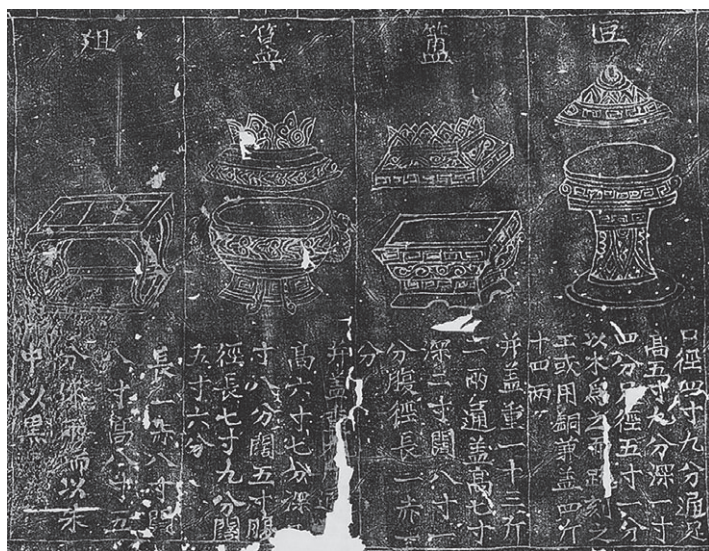 豆
口徑四寸九分通足
高五寸九分深一寸
四分足徑五寸一分
以木爲之而 刻之
工或用銅兼蓋四斤
十四兩
簠
并蓋重一十三斤
二兩通蓋高七寸
深二寸闊八寸一
分腹徑長一赤一
分
簋
并蓋
高六寸七分深
寸八分闊五寸腹
徑長七寸九分闊
五寸六分
俎
長一赤八寸闊
八寸高八寸五
分漆兩端以朱
中以黑